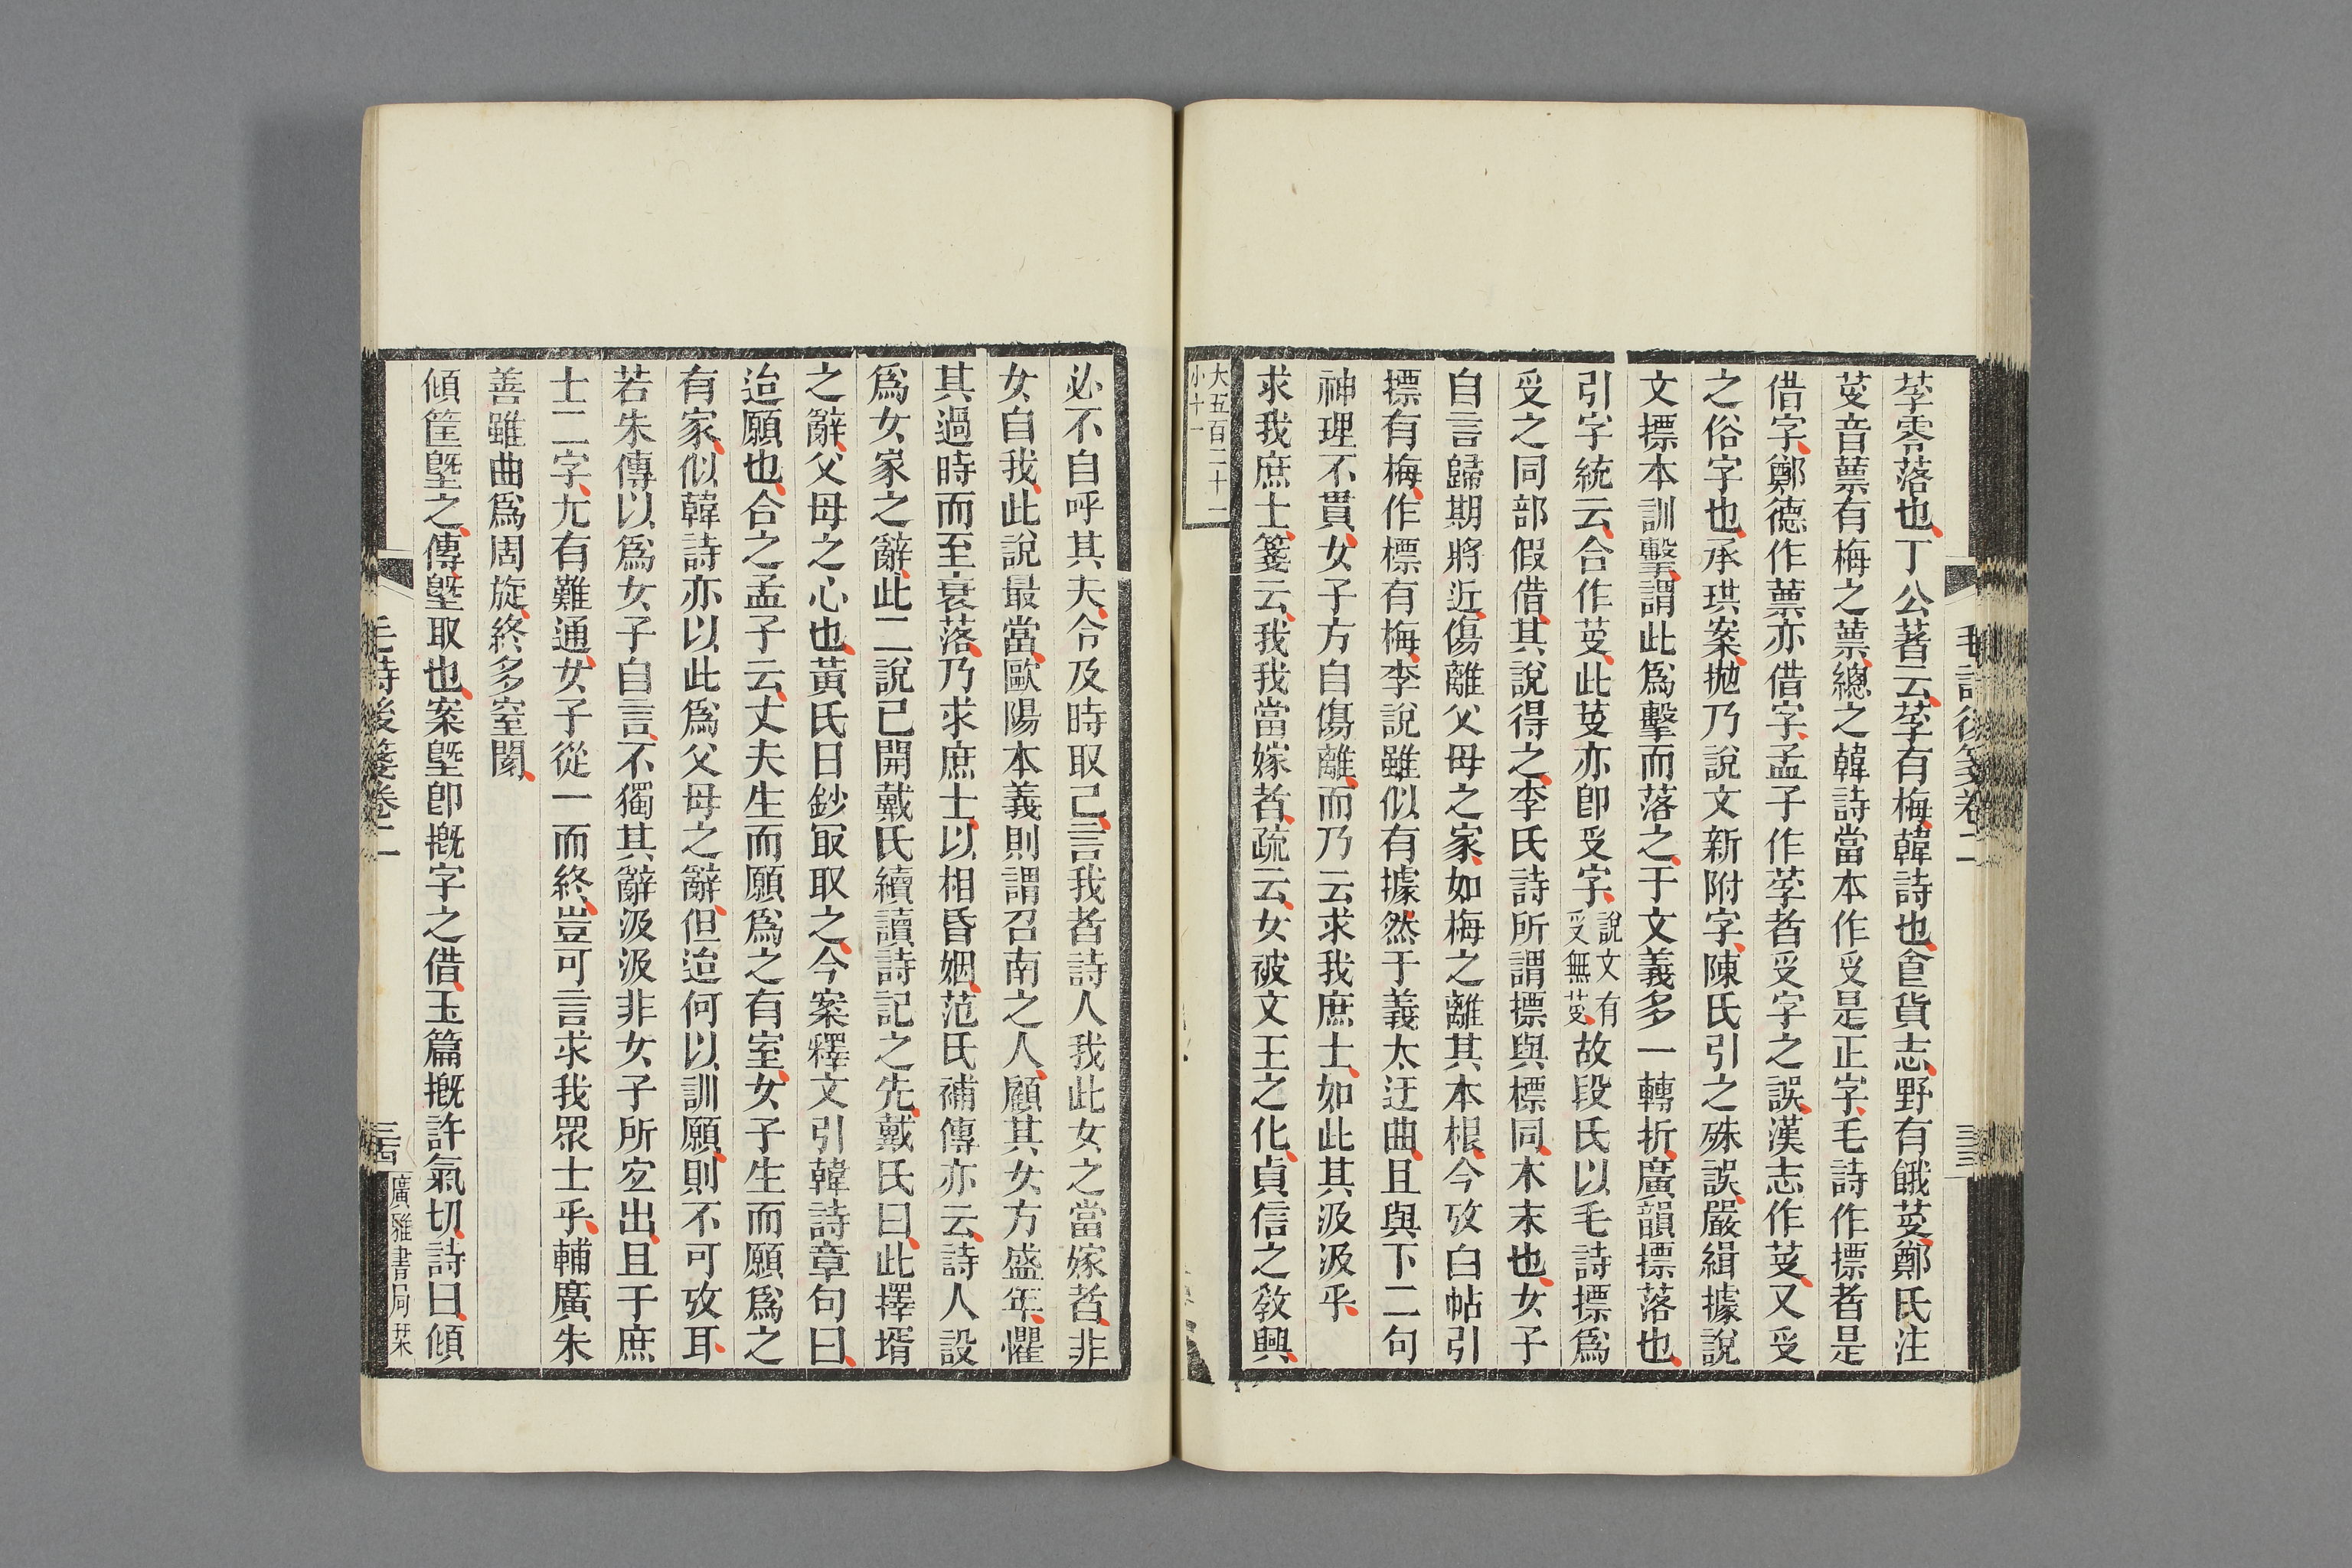 毛詩後箋卷二
三十三
莩零落也丁公著云莩有梅韓詩也食貨志野有餓芰鄭氏注
芰音蔈有梅之蔈總之韓詩當本作𠬪是正字毛詩作摽者是
借字鄭德作蔈亦借字孟子作莩者𠬪字之誤漢志作芰又𠬪
之俗字也承珙案抛乃說文新附字陳氏引之殊誤嚴緝據說
文摽本訓擊謂此爲擊而落之于文義多一轉折廣韻摽落也
引字統云合作芰此芰亦卽𠬪字說文有𠬪無芰故段氏以毛詩摽爲
𠬪之同部假借其說得之李氏詩所謂摽與標同木末也女子
自言歸期將近傷離父母之家如梅之離其本根今攷白帖引
摽有梅作標有梅李說雖似有據然于義太迂曲且與下二句
神理不貫女子方自傷離而乃云求我庶士如此其汲汲乎
求我庶士箋云我我當嫁者疏云女被文王之化貞信之敎興
大五百二十二
小十一
必不自呼其夫令及時取己言我者詩人我此女之當嫁者非
女自我此說最當歐陽本義則謂召南之人顧其女方盛年懼
其過時而至衰落乃求庶士以相昏姻范氏補傳亦云詩人設
爲女家之辭此二說已開戴氏續讀詩記之先戴氏曰此擇壻
之辭父母之心也黃氏日鈔冣取之今案釋文引韓詩章句曰
迨願也合之孟子云丈夫生而願爲之有室女子生而願爲之
有家似韓詩亦以此爲父母之辭但迨何以訓願則不可攷耳
若朱傳以爲女子自言不獨其辭汲汲非女子所宐出且于庶
士二字尤有難通女子從一而終豈可言求我眾士乎輔廣朱
善雖曲爲周旋終多窒閡
傾筐墍之傳墍取也案墍卽摡字之借玉篇摡許氣切詩曰傾
毛詩後箋卷二
三十四
廣雅書局栞